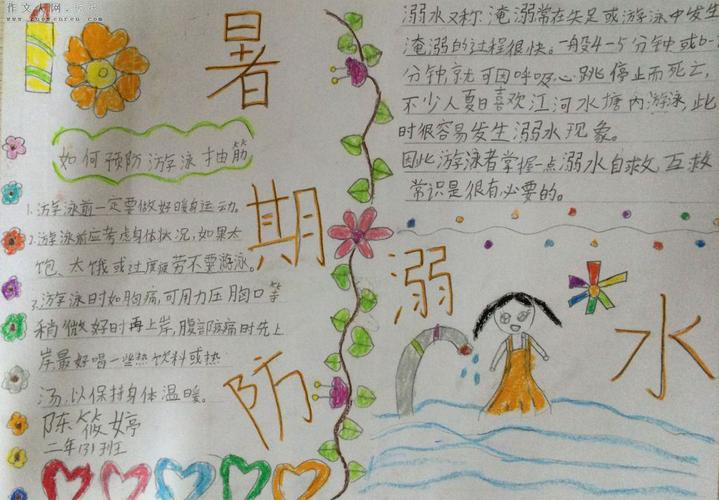 作文人网
暑
期
防
溺
水
如何预防游泳抽筋
1.游泳前一定要做好暖身运动。
2.游泳前应考虑身体状况,如果太
饱、太饿或过度疲劳不要游泳。
3.游泳时如胸痛,可用力压胸口等
稍微好时再上岸,腹部疼痛时先上
岸最好喝一些热饮料或热
汤,以保持身体温暖。
陈筱婷
二年(3)班
溺水又称淹溺常在失足或游泳中发生
淹溺的过程很快。一般4-5分钟或6-7
分钟就可因呼吸心跳停止而死亡,
不少人夏日喜欢江河水塘内游泳,此
时很容易发生溺水现象。
因此游泳者掌握一点溺水自救,互救
常识是很有必要的。